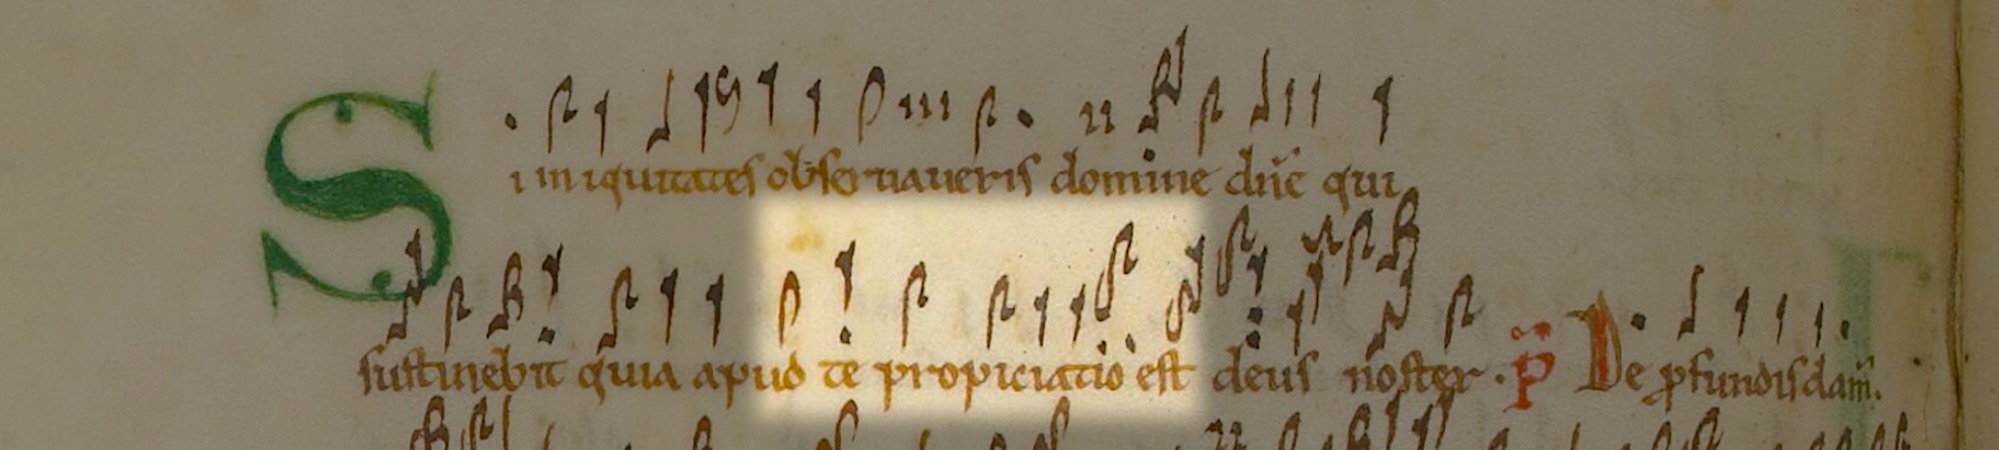 Si iniquitates obseruaueris domine dn̄e qui
sustinebit quia apud te propiciatiō est deus noster. p̄ De ꝓfundis clam̄.